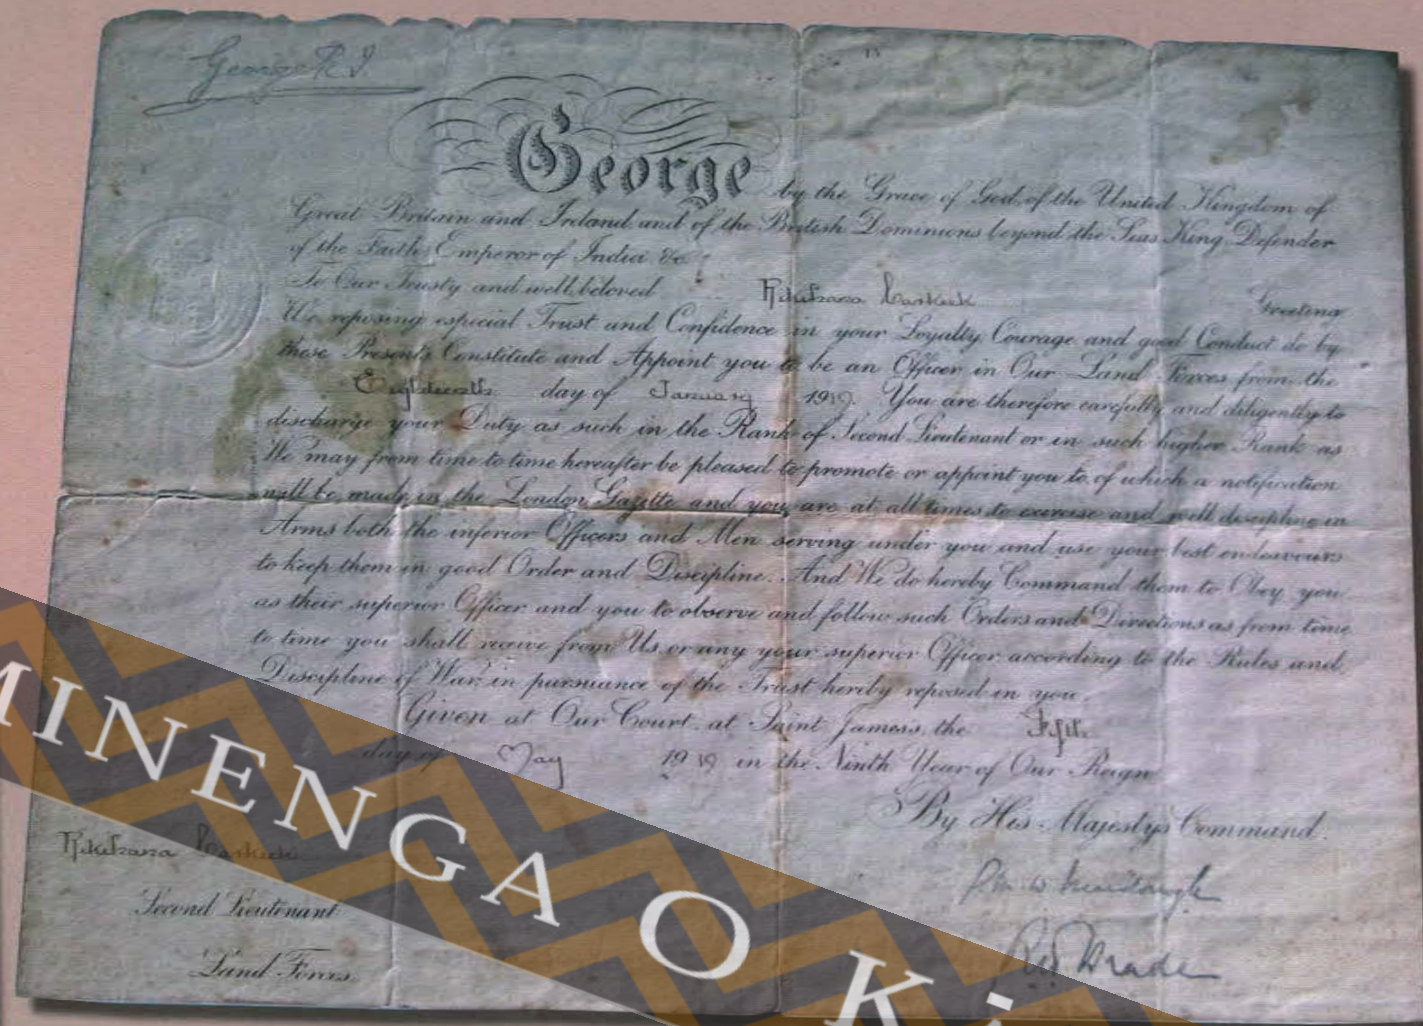 George R.I.
George by the Grace of God, of the United Kingdom of
Great Britain and Ireland and of the British Dominions beyond the Seas King, Defender
of the Faith, Emperor of India &c
To Our Trusty and well beloved Rikihana Carkeek Greeting
We reposing especial Trust and Confidence in your Loyalty Courage and good Conduct do by
these Presents Constitute and Appoint you to be an Officer in Our Land Forces from the
Eighteenth day of January 1919. You are therefore carefully and diligently to
discharge your Duty as such in the Rank of Second Lieutenant or in such higher Rank as
We may from time to time hereafter be pleased to promote or appoint you to of which a notification
will be made in the London Gazette and you are at all times to exercise and well discipline in
Arms both the inferior Officers and Men serving under you and use your best endeavours
to keep them in good Order and Discipline. And We do hereby Command them to Obey you
as their superior Officer and you to observe and follow such Orders and Directions as from time
to time you shall receive from Us, or any your superior Officer according to the Rules and
Discipline of War, in pursuance of the Trust hereby reposed in you.
Given at Our Court, at Saint James's, the Fifth
day of May 1919 in the Ninth Year of Our Reign
By His Majesty's Command.
Rikihana Carkeek
Second Lieutenant
Land Forces
MINENGA O Ki